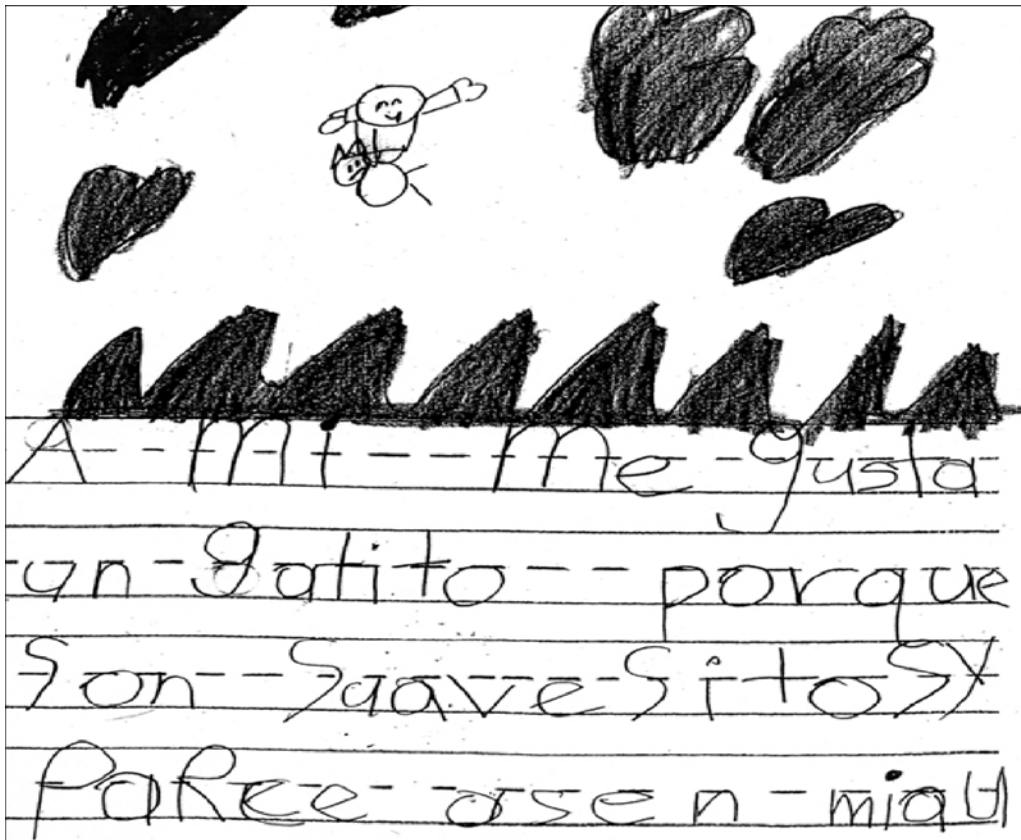 A mi me gusta
un gatito porque
Son Suavesitos y
PaRece asen miau